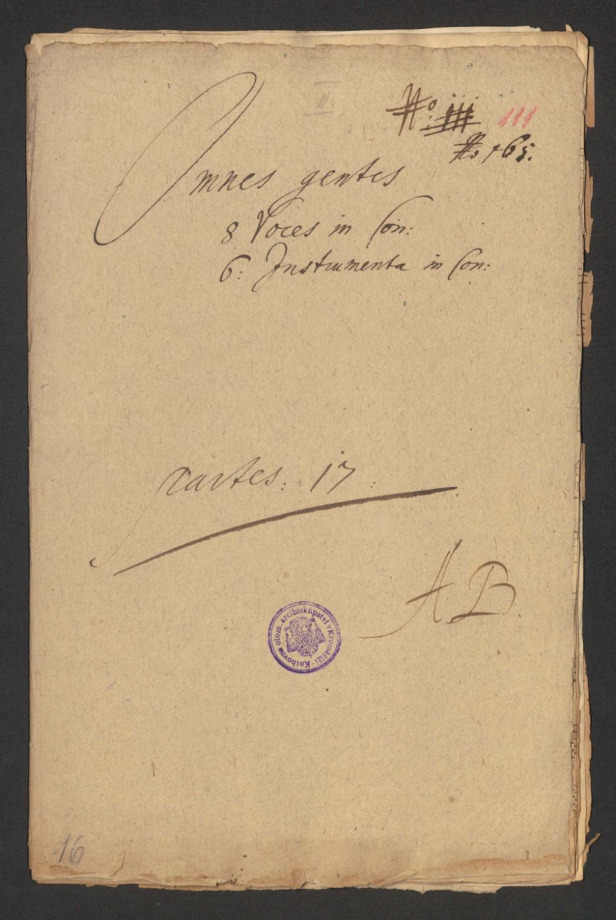 II
No: III 111
No 165.
Omnes gentes
8 Voces in Con:
6: Instrumenta in Con:
partes: 17:
AB
Knihovna olom. arcibiskupství v Kroměříži
16